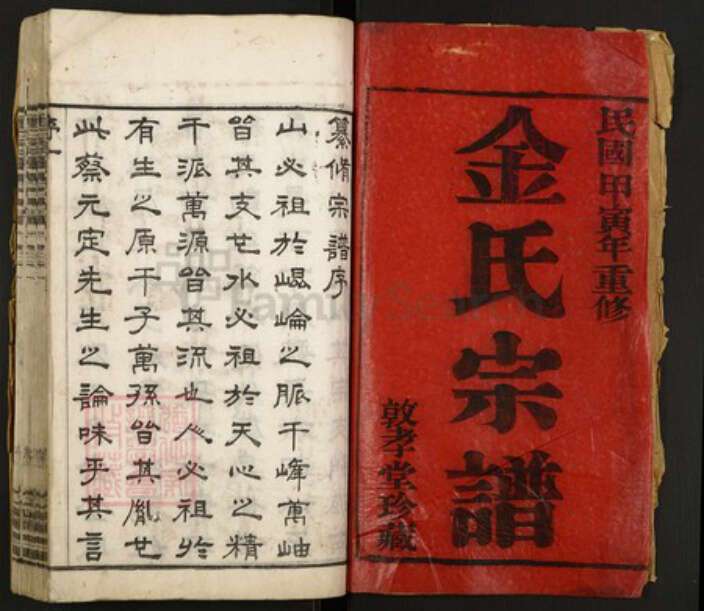 民國甲寅年重修
金氏宗譜
敦孝堂珍藏
纂脩宗譜序
山必祖於崐崘之脈千峰萬岫
皆其支也水必祖於天心之精
千派萬源皆其流也人必祖於
有生之原千子萬孫皆其胤也
此蔡元定先生之論味乎其言
序一
FamilySearch